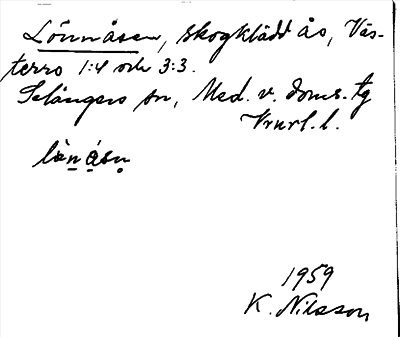 Lönnåsen, skogklädd ås, Väs-
terro 1:4 och 3:3.
Selångers sn, Med. v. doms. tg
Vrurl. l.
lònåsn
1959
K. Nilsson